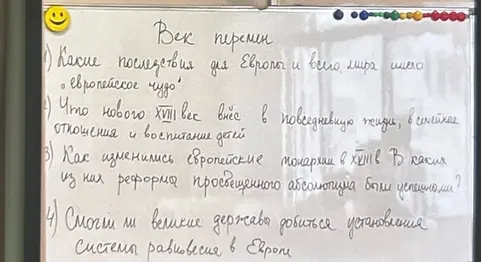 Век перемен
1) Какие последствия для Европы и всего мира имело
"европейское чудо"
2) Что нового XVIII век внёс в повседневную жизнь, в семейные
отношения и воспитание детей
3) Как изменились европейские монархии в XVIII в. В каких
из них реформы просвещенного абсолютизма были успешными?
4) Смогли ли великие державы добиться установления
системы равновесия в Европе